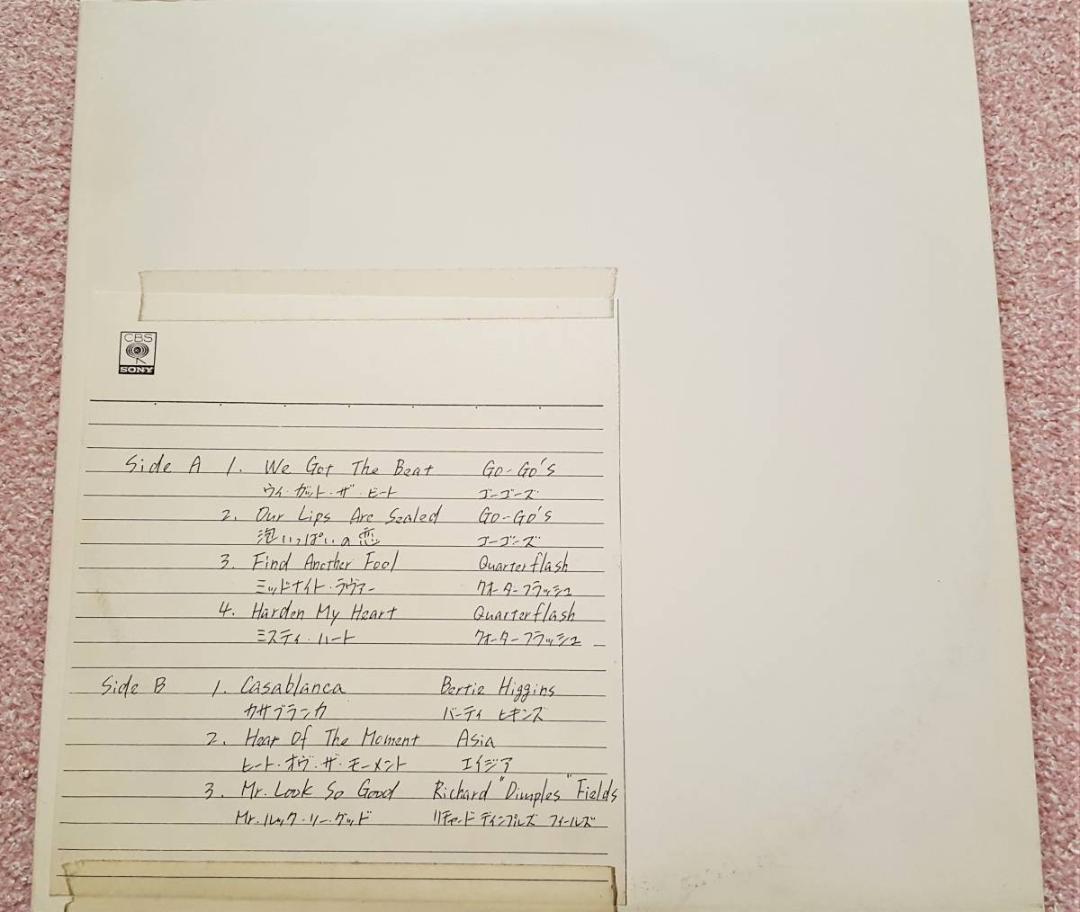 CBS
SONY
Side A 1. We Got The Beat Go-Go's
ウィ・ガット・ザ・ビート ゴーゴーズ
2. Our Lips Are Sealed Go-Go's
泡いっぱいの恋 ゴーゴーズ
3. Find Another Fool Quarterflash
ミッドナイト・ラヴァー クォーターフラッシュ
4. Harden My Heart Quarterflash
ミスティ・ハート クォーターフラッシュ
Side B 1. Casablanca Bertie Higgins
カサブランカ バーティ ヒギンズ
2. Hear Of The Moment Asia
ヒート・オヴ・ザ・モーメント エイジア
3. Mr. Look So Good Richard "Dimples" Fields
Mr.ルック・ソー・グッド リチャード ディンプルズ フィールズ